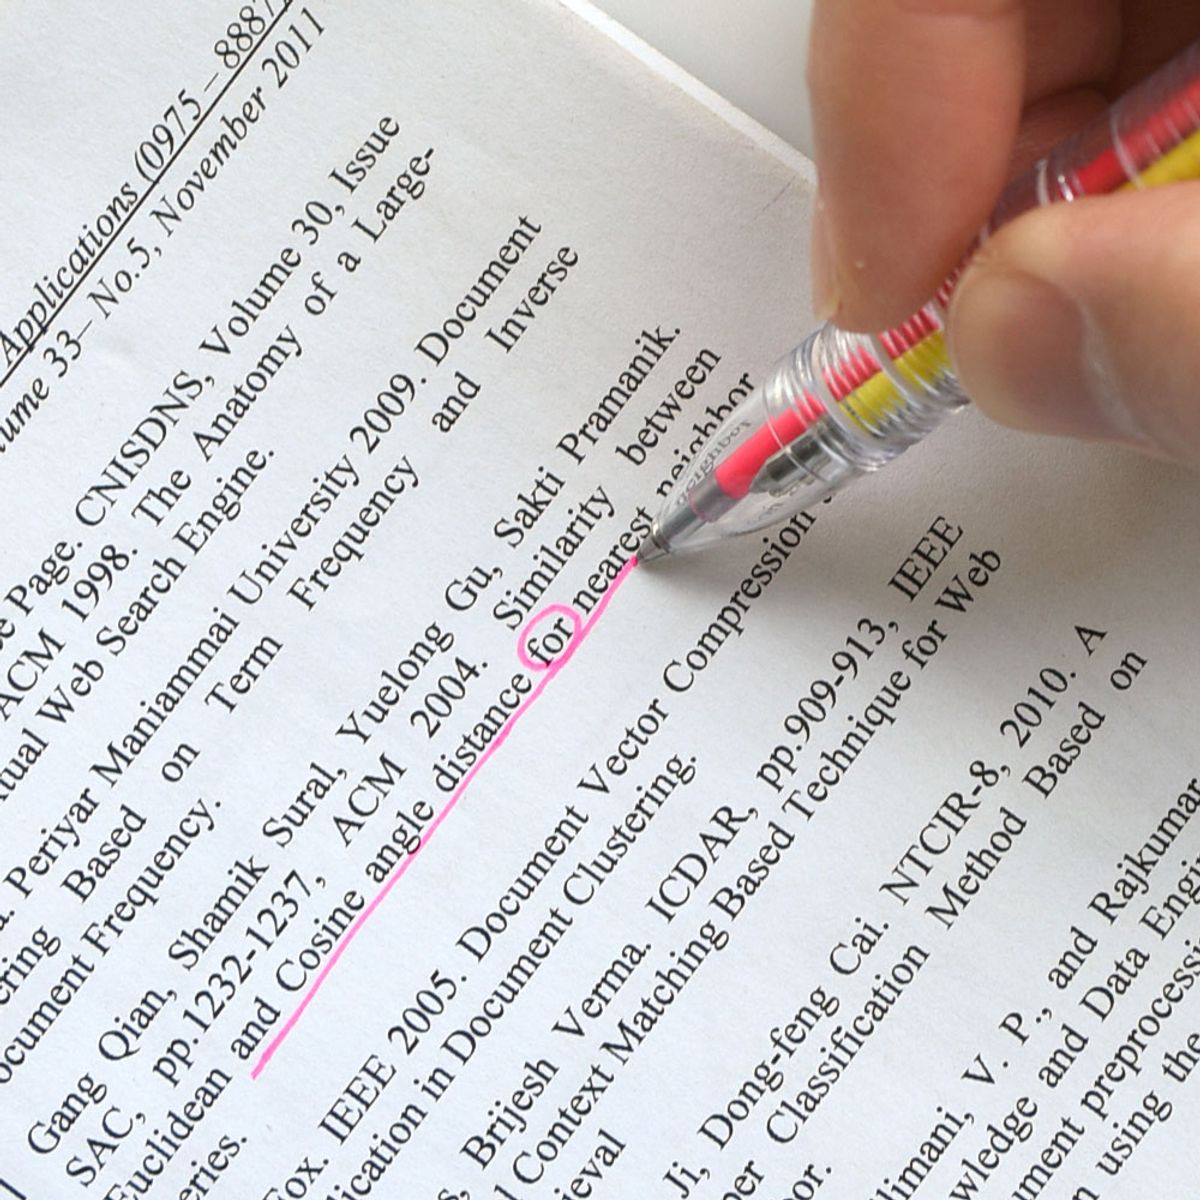 Applications (0975 – 8887
ume 33– No.5, November 2011
e Page. CNISDNS, Volume 30, Issue
ACM 1998. The Anatomy of a Large-
xtual Web Search Engine.
Periyar Maniammai University 2009. Document
ering Based on Term Frequency and Inverse
ocument Frequency.
Gang Qian, Shamik Sural, Yuelong Gu, Sakti Pramanik.
SAC, pp.1232-1237, ACM 2004. Similarity between
Euclidean and Cosine angle distance for nearest neighbor
eries.
Fox. IEEE 2005. Document Vector Compression
lication in Document Clustering.
Brijesh Verma. ICDAR, pp.909-913, IEEE
l Context Matching Based Technique for Web
ieval
Ji, Dong-feng Cai. NTCIR-8, 2010. A
per Classification Method Based on
or.
limani, V. P., and Rajkumar
wledge and Data Engi
ment preprocessi
using the